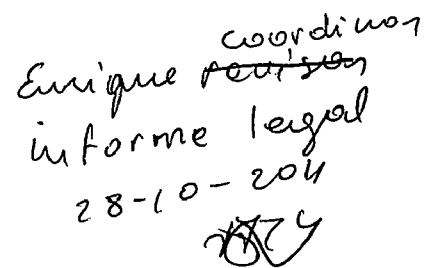 coordinar
Enrique revisar
informe legal
28-10-2011